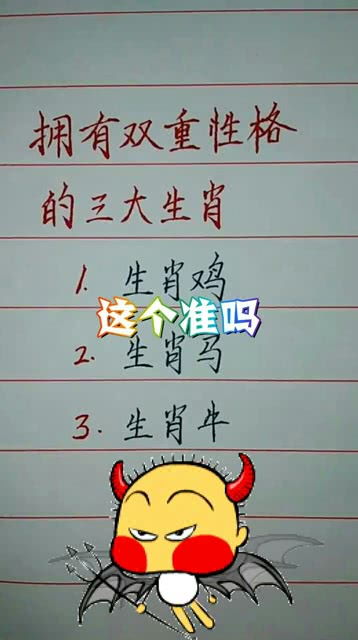 拥有双重性格
的三大生肖
1. 生肖鸡
这个准吗
2. 生肖马
3. 生肖牛